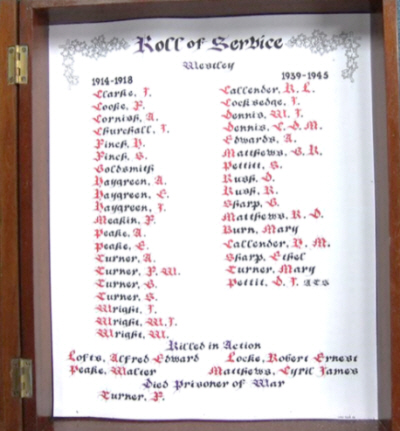 Roll of Service
Westley
1914-1918
Clarke, F.
Cooke, P.
Cornish, A.
Churchall, F.
Finch, H.
Finch, S.
Goldsmith
Haygreen, A.
Haygreen, C.
Haygreen, F.
Meakin, P.
Peake, A.
Peake, E.
Turner, A.
Turner, P. W.
Turner, G.
Turner, S.
Wright, F.
Wright, W.F.
Wright, W.
1939-1945
Callender, R. L.
Cocksedge, F.
Dennis, W. F.
Dennis, C. D. M.
Edwards, A.
Matthews, G. R.
Pettitt, S.
Rush, D.
Rush, R.
Sharp, G.
Matthews, R. D.
Burn, Mary
Callender, H. M.
Sharp, Ethel
Turner, Mary
Pettit, D. F. ATS
Killed in Action
Lofts, Alfred Edward Locke, Robert Ernest
Peake, Walter Matthews, Cyril James
Died Prisoner of War
Turner, P.